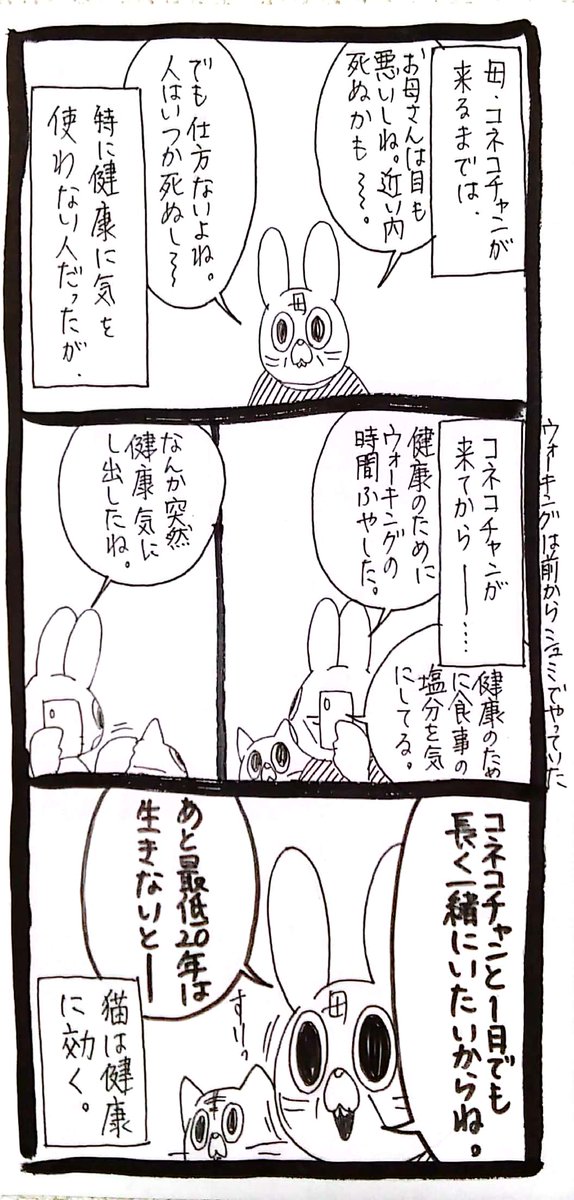 母・コネコチャンが
来るまでは、
お母さんは目も
悪いしね。近い内
死ぬかも〜〜。
でも仕方ないよね。
人はいつか死ぬし〜〜
特に健康に気を
使わない人だったが、
母
コネコチャンが
来てから――……
健康のために
ウォーキングの
時間ふやした。
健康のため
に食事の
塩分を気
にしてる。
ウォーキングは前からシュミでやっていた
なんか突然
健康気に
し出したね。
コネコチャンと1日でも
長く一緒にいたいからね。
あと最低20年は
生きないとー
母
すりっ
猫は健康
に効く。